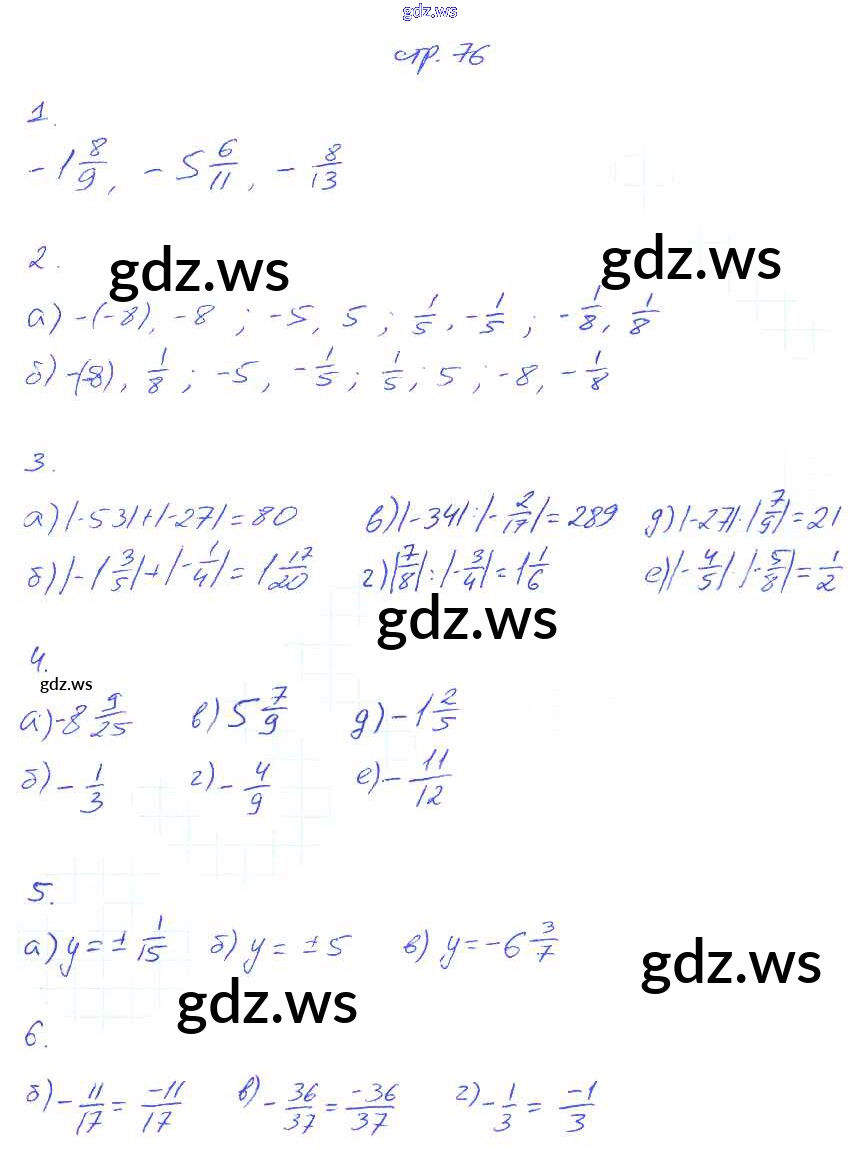 gdz.ws
стр. 76
1.
-1 8/9, -5 6/11, -8/13
2.
gdz.ws gdz.ws
а) -(-8), -8 ; -5, 5 ; 1/5, -1/5 ; -1/8, 1/8
б) -(-8), 1/8 ; -5, -1/5 ; 1/5 ; 5 ; -8, -1/8
3.
а) |-53|+|-27|=80 в) |-34|:|-2/17|=289 д) |-27|·|7/9|=21
б) |-1 3/5|+|-1/4|=1 17/20 г) |7/8|:|-3/4|=1 1/6 е) |-4/5|·|-5/8|=1/2
gdz.ws
4.
gdz.ws
а) -8 9/25 в) 5 7/9 д) -1 2/5
б) -1/3 г) -4/9 е) -11/12
5.
а) y=±1/15 б) y=±5 в) y=-6 3/7
gdz.ws gdz.ws
6.
б) -11/17=-11/17 в) -36/37=-36/37 г) -1/3=-1/3